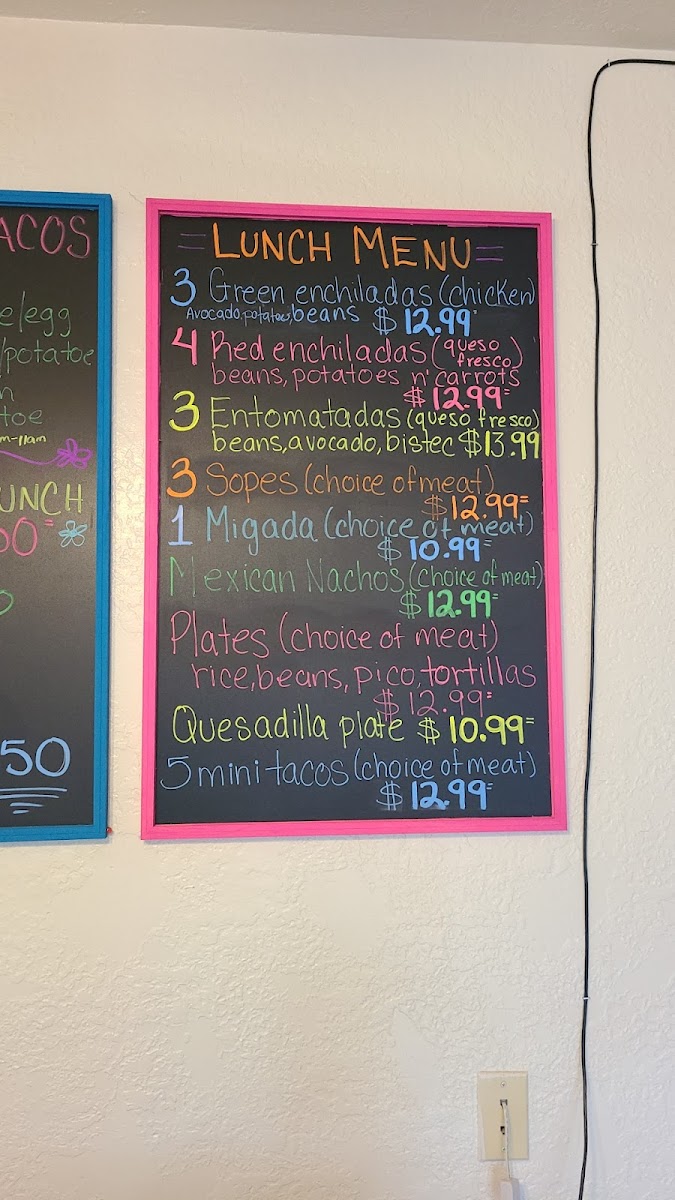 ACOS
e/egg
/potatoe
n
toe
m-11am
UNCH
00
50
=LUNCH MENU=
3 Green enchiladas (chicken)
Avocado, potatoes, beans $12.99
4 Red enchiladas (queso fresco)
beans, potatoes n' carrots
$12.99
3 Entomatadas (queso fresco)
beans, avocado, bistec $13.99
3 Sopes (choice of meat)
$12.99
1 Migada (choice of meat)
$10.99
Mexican Nachos (choice of meat)
$12.99
Plates (choice of meat)
rice, beans, pico, tortillas
$12.99
Quesadilla plate $10.99
5 mini tacos (choice of meat)
$12.99